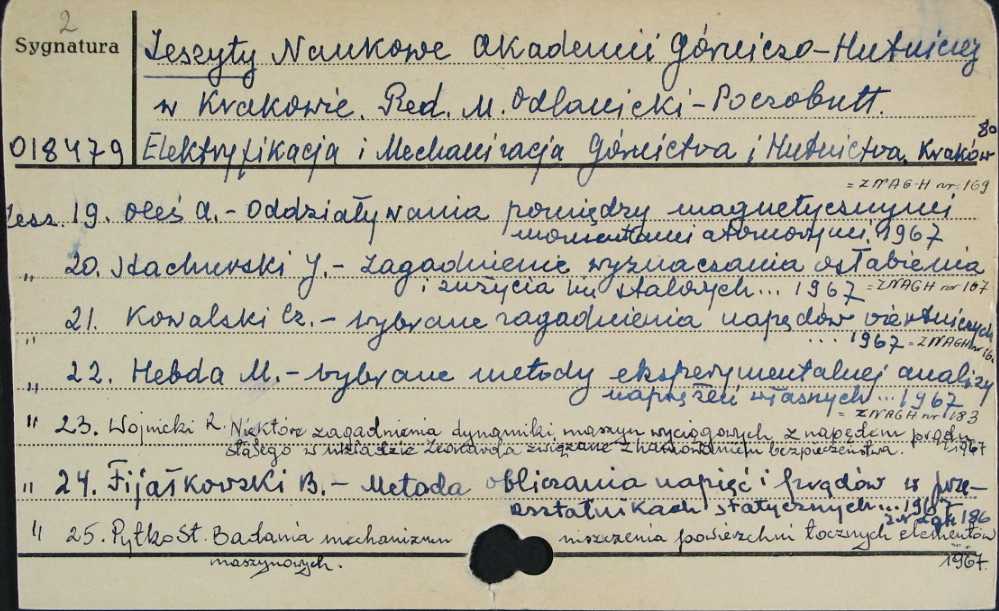 2
Sygnatura
Zeszyty Naukowe Akademii Górniczo-Hutniczej
w Krakowie. Red. M. Odlanicki-Poczobutt.
018479
Elektryfikacja i Mechanizacja Górnictwa i Hutnictwa. Kraków 8o
= ZNAGH nr. 169
Zesz. 19. Oleś A. - Oddziaływania pomiędzy magnetycznymi
momentami atomowymi. 1967
" 20. Stachurski J. - Zagadnienie wyznaczania osłabienia
i zużycia lin stalowych ... 1967 = ZNAGH nr 167
" 21. Kowalski Cz. - Wybrane zagadnienia napędów wiertniczych
... 1967 = ZNAGH nr
" 22. Hebda M. - Wybrane metody eksperymentalnej analizy
naprężeń własnych ... 1967
= ZNAGH nr 183
" 23. Wojnicki R. Niektóre zagadnienia dynamiki maszyn wyciągowych z napędem prądu
stałego w układzie Leonarda związane z hamowaniem bezpieczeństwa. 1967
" 24. Fijałkowski B. - Metoda obliczania napięć i prądów w prze-
kształtnikach statycznych ... 1967
ZNAGH 186
" 25. Pytko St. Badania mechanizmu niszczenia powierzchni tocznych elementów
maszynowych. 1967.